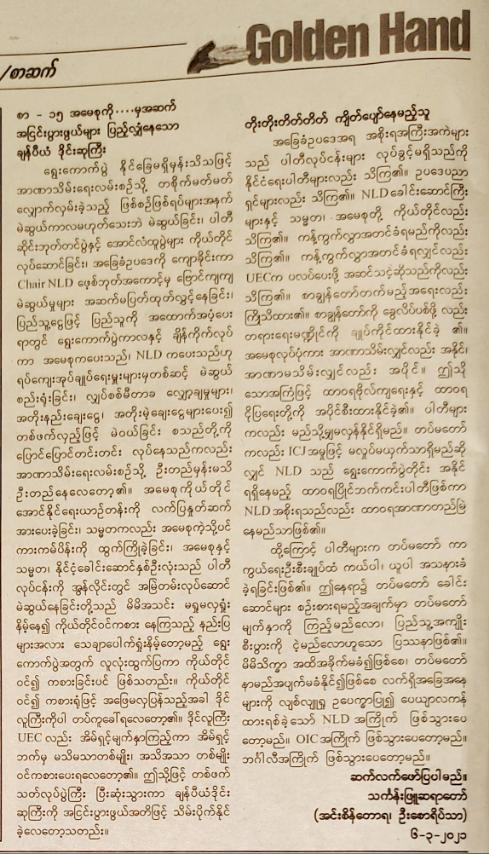 Golden Hand
/စာဆက်
စာ - ၁၅ အမေစုကို....မှအဆက်
အငြင်းပွားဖွယ်များ ပြည့်လျှံနေသော
ချန်ပီယံ ဒိုင်းဆုကြီး
ရွေးကောက်ပွဲ နိုင်ခြေမရှိမှန်းသိသဖြင့်
အာဏာသိမ်းရေးလမ်းစဉ်သို့ တစိုက်မတ်မတ်
လျှောက်လှမ်းခဲ့သည့် ဖြစ်စဉ်ဖြစ်ရပ်များအနက်
မဲဆွယ်ကာလမဟုတ်သေးဘဲ မဲဆွယ်ခြင်း၊ ပါတီ
ဆိုင်းဘုတ်တင်ပွဲနှင့် အောင်လံထူပွဲများ ကိုယ်တိုင်
လုပ်ဆောင်ခြင်း၊ အခြေခံဥပဒေကို ကျောခိုင်းကာ
Chair NLD ဖေ့စ်ဘုတ်အကောင့်မှ ဗြောင်ကျကျ
မဲဆွယ်မှုများ အဆက်မပြတ်ထုတ်လွှင့်နေခြင်း၊
ပြည်သူ့ငွေဖြင့် ပြည်သူကို အထောက်အပံ့ပေး
ရာတွင် ရွေးကောက်ပွဲကာလနှင့် ချိန်ကိုက်လုပ်
ကာ အမေစုကပေးသည်၊ NLD ကပေးသည်ဟု
ရပ်ကျေးအုပ်ချုပ်ရေးမှူးများမှတစ်ဆင့် မဲဆွယ်
စည်းရုံးခြင်း၊ လျှပ်စစ်မီတာခ လျှော့ချမှုများ၊
အတိုးနည်းချေးငွေ၊ အတိုးမဲ့ချေးငွေများပေး၍
တစ်ဖက်လှည့်ဖြင့် မဲဝယ်ခြင်း စသည်တို့ကို
ပြောင်ပြောင်တင်းတင်း လုပ်နေသည်ကလည်း
အာဏာသိမ်းရေးလမ်းစဉ်သို့ ဦးတည်မှန်းမသိ
ဦးတည်နေလေတော့၏။ အမေစုကိုယ်တိုင်
အောင်နိုင်ရေးယာဉ်တန်းကို လက်ပြနှုတ်ဆက်
အားပေးခဲ့ခြင်း၊ သမ္မတကလည်း အမေစုကဲ့သို့ပင်
ကားကမ်ပိန်းကို ထွက်ကြိုခဲ့ခြင်း၊ အမေစုနှင့်
သမ္မတ၊ နိုင်ငံ့ခေါင်းဆောင်နှစ်ဦးလုံးသည် ပါတီ
လုပ်ငန်းကို အွန်လိုင်းတွင် အမြဲတမ်းလုပ်ဆောင်
မဲဆွယ်နေခြင်းတို့သည် မိမိအသင်း မရှုမလှရှုံး
နိမ့်နေ၍ ကိုယ်တိုင်ဝင်ကစား နေကြသည့် နည်းပြ
များအလား သေချာပေါက်ရှုံးနိမ့်တော့မည့် ရွေး
ကောက်ပွဲအတွက် လူလုံးထွက်ပြကာ ကိုယ်တိုင်
ဝင်၍ ကစားခြင်းပင် ဖြစ်သတည်း။ ကိုယ်တိုင်
ဝင်၍ ကစားရုံဖြင့် အဖြေမလှပြန်သည့်အခါ ဒိုင်
လူကြီးကိုပါ တပ်ကူခေါ်ရလေတော့၏။ ဒိုင်လူကြီး
UEC လည်း အိမ်ရှင့်မျက်နှာကြည့်ကာ အိမ်ရှင့်
ဘက်မှ မသိမသာတစ်မျိုး၊ အသိအသာ တစ်မျိုး
ဝင်ကစားပေးရလေတော့၏။ ဤသို့ဖြင့် တစ်ဖက်
သတ်လုပ်ပွဲကြီး ပြီးဆုံးသွားကာ ချန်ပီယံဒိုင်း
ဆုကြီးကို အငြင်းပွားဖွယ်အတိဖြင့် သိမ်းပိုက်နိုင်
ခဲ့လေတော့သတည်း။
တိုးတိုးတိတ်တိတ် ကျိတ်ပျော်နေမည့်သူ
အခြေခံဥပဒေအရ အစိုးရအကြီးအကဲများ
သည် ပါတီလုပ်ငန်းများ လုပ်ခွင့်မရှိသည်ကို
နိုင်ငံရေးပါတီများလည်း သိကြ၏။ ဥပဒေပညာ
ရှင်များလည်း သိကြ၏။ NLD ခေါင်းဆောင်ကြီး
များနှင့် သမ္မတ၊ အမေစုတို့ ကိုယ်တိုင်လည်း
သိကြ၏။ ကန့်ကွက်လွှာအတင်ခံရမည်ကိုလည်း
သိကြ၏။ ကန့်ကွက်လွှာအတင်ခံရလျှင်လည်း
UECက ပလပ်ပေးဖို့ အဆင်သင့်ဆိုသည်ကိုလည်း
သိကြ၏။ စာချွန်တော်တက်မည့်အရေးလည်း
ကြိုသိထား၏။ စာချွန်တော်ကို ခွေးလိပ်ပစ်ဖို့ လည်း
တရားရေးမဏ္ဍိုင်ကို ချုပ်ကိုင်ထားနိုင်ခဲ့ ၏။
အမေစုလုပ်ပုံကား အာဏာသိမ်းလျှင်လည်း အနိုင်၊
အာဏာမသိမ်းလျှင်လည်း အပိုင် ။ ဤသို့
သောအကြံဖြင့် ထာဝရဗိုလ်ကျရေးနှင့် ထာဝရ
ငိုပြရေးတို့ကို အပိုင်စီးထားနိုင်ခဲ့၏။ ပါတီများ
ကလည်း မည်သို့မျှမလှန်နိုင်ရှိမည်။ တပ်မတော်
ကလည်း ICJ အမှုဖြင့် မလှုပ်မယှက်သာရှိမည်ဆို
လျှင် NLD သည် ရွေးကောက်ပွဲတိုင်း အနိုင်
ရရှိနေမည့် ထာဝရပြိုင်ဘက်ကင်းပါတီဖြစ်ကာ
NLD အစိုးရသည်လည်း ထာဝရအာဏာတည်မြဲ
နေမည်သာဖြစ်၏။
ထို့ကြောင့် ပါတီများက တပ်မတော် ကာ
ကွယ်ရေးဦးစီးချုပ်ထံ ကယ်ပါ၊ ယူပါ အသနားခံ
ခဲ့ရခြင်းဖြစ်၏။ ဤနေရာ၌ တပ်မတော် ခေါင်း
ဆောင်များ စဉ်းစားရမည့်အချက်မှာ တပ်မတော်
မျက်နှာကို ကြည့်မည်လော၊ ပြည်သူ့အကျိုး
စီးပွားကို ငဲ့မည်လောဟူသော ပြဿနာဖြစ်၏။
မိမိသိက္ခာ အထိအခိုက်မခံ၍ဖြစ်စေ၊ တပ်မတော်
နာမည်အပျက်မခံနိုင်၍ဖြစ်စေ လက်ရှိအခြေအနေ
များကို လျစ်လျူရှု ဥပေက္ခာပြု၍ ပေယျာလကန်
ထားရစ်ခဲ့သော် NLD အကြိုက် ဖြစ်သွားပေ
တော့မည်။ OIC အကြိုက် ဖြစ်သွားပေတော့မည်။
ဘင်္ဂါလီအကြိုက် ဖြစ်သွားပေတော့မည်။
ဆက်လက်ဖော်ပြပါမည်။
သင်္ကန်းဖြူဆရာတော်
(အင်းစိန်တောရ၊ ဦးစောရိပ်သာ)
၆-၃-၂၀၂၁